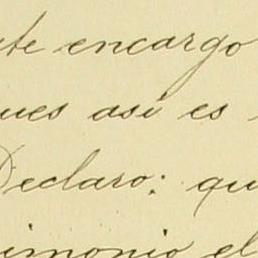 te encargo
ues así es
Declaro: qu
imonio el